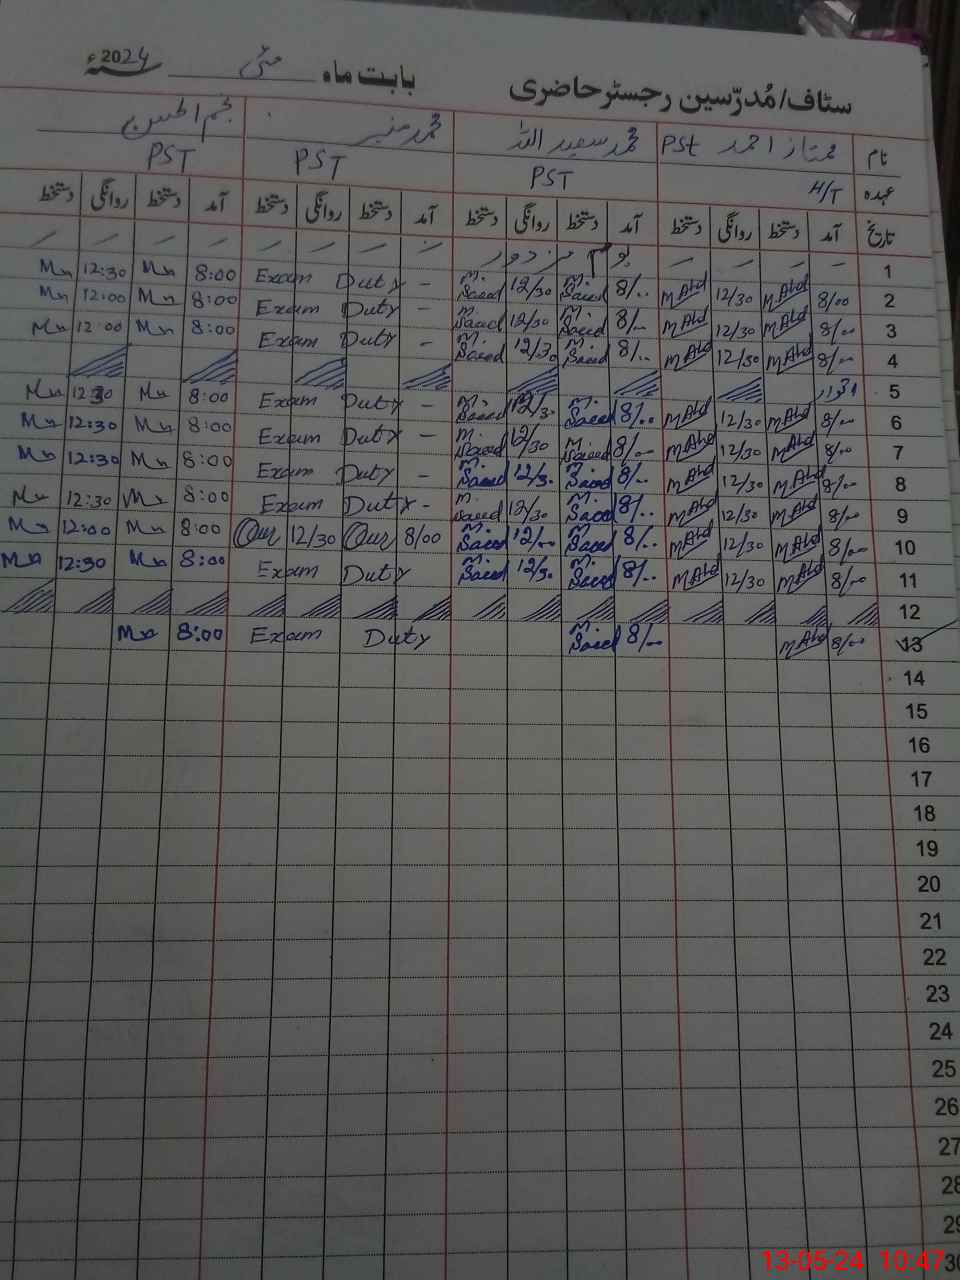 سٹاف/مُدرّسین رجسٹر حاضری بابت ماہ مئی سنہ 2024ء
نام ممتاز احمد PSt محمد سعید اللہ محمد منیر نجم الحسن
عہدہ H/T PST PST PST
تاریخ آمد دستخط روانگی دستخط آمد دستخط روانگی دستخط آمد دستخط روانگی دستخط آمد دستخط روانگی دستخط
1 — — — — یوم مزدور — — — — — — — —
2 8/00 M Ahd 12/30 M Ahd 8/.. M. Saeed 12/30 M. Saeed - Exam Duty 8:00 Mn 12:30 Mn
3 8/00 M Ahd 12/30 M Ahd 8/.. M. Saeed 12/30 M. Saeed - Exam Duty 8:00 Mn 12:00 Mn
4 8/00 M Ahd 12/30 M Ahd 8/.. M. Saeed 12/30 M. Saeed - Exam Duty 8:00 Mn 12:00 Mn
5 اتوار
6 8/00 M Ahd 12/30 M Ahd 8/00 M. Saeed 12/30 M. Saeed - Exam Duty 8:00 Mn 12:30 Mn
7 8/00 M Ahd 12/30 M Ahd 8/00 M. Saeed 12/30 M. Saeed - Exam Duty 8:00 Mn 12:30 Mn
8 8/00 M Ahd 12/30 M Ahd 8/.. M. Saeed 12/30 M. Saeed - Exam Duty 8:00 Mn 12:30 Mn
9 8/00 M Ahd 12/30 M Ahd 8/.. M. Saeed 12/30 M. Saeed - Exam Duty 8:00 Mn 12:30 Mn
10 8/00 M Ahd 12/30 M Ahd 8/.. M. Saeed 12/.. M. Saeed 8/00 12/30 8:00 Mn 12:00 Mn
11 8/00 M Ahd 12/30 M Ahd 8/.. M. Saeed 12/30 M. Saeed Exam Duty 8:00 Mn 12:30 Mn
12
13 8/00 M Ahd 8/.. M. Saeed Exam Duty 8:00 Mn
14
15
16
17
18
19
20
21
22
23
24
25
26
27
28
29
30
13-05-24 10:47